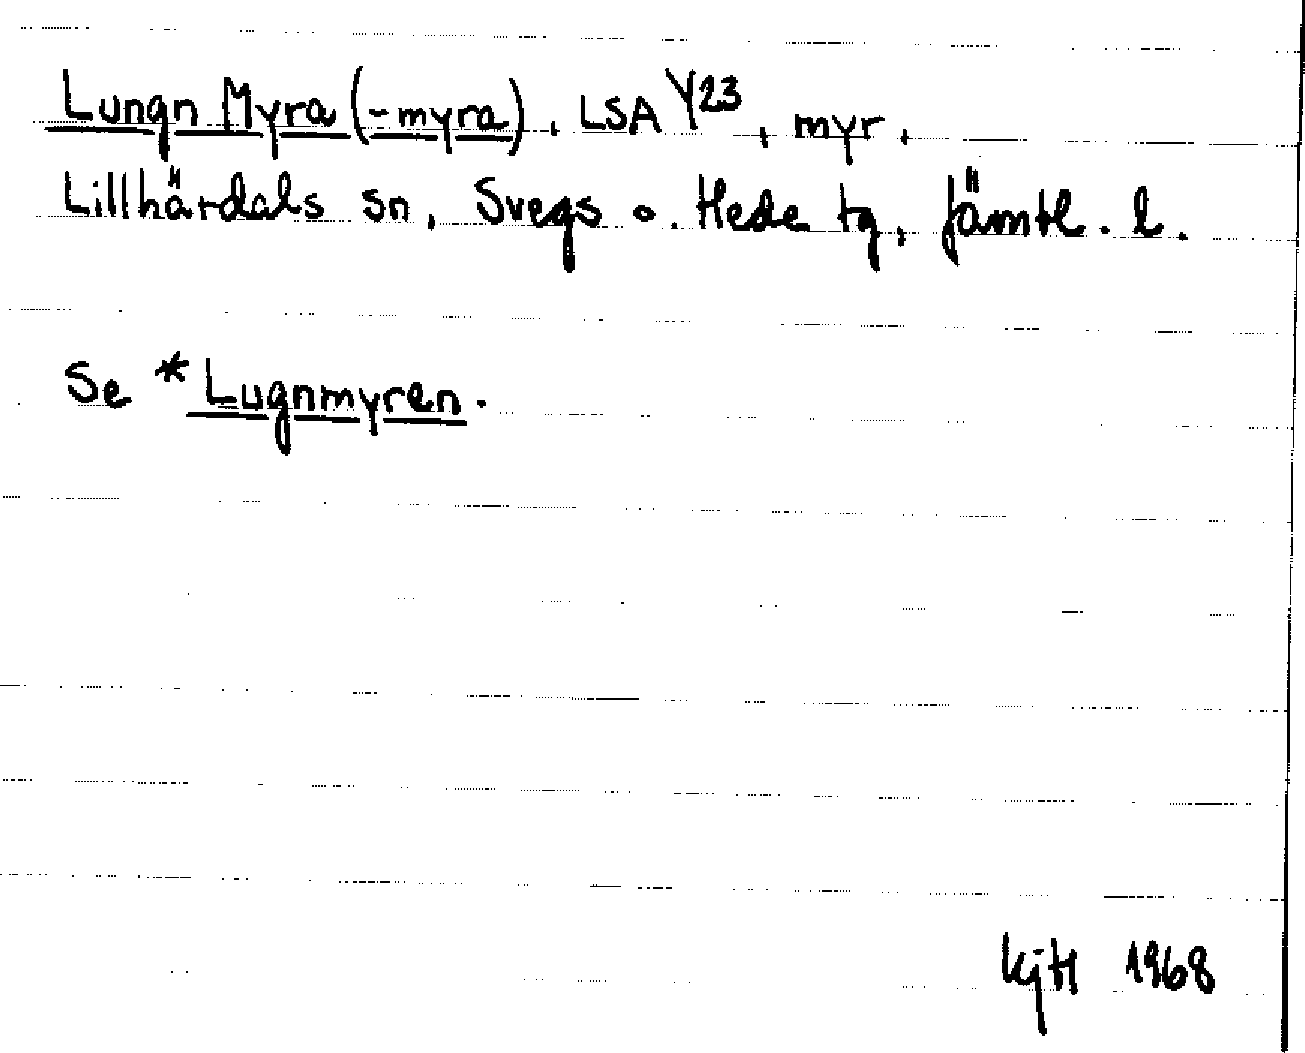 Lungn Myra (-myra), LSA Y23, myr,
Lillhärdals sn, Svegs o. Hede tg, Jämtl. l.
Se *Lugnmyren.
KjH 1968